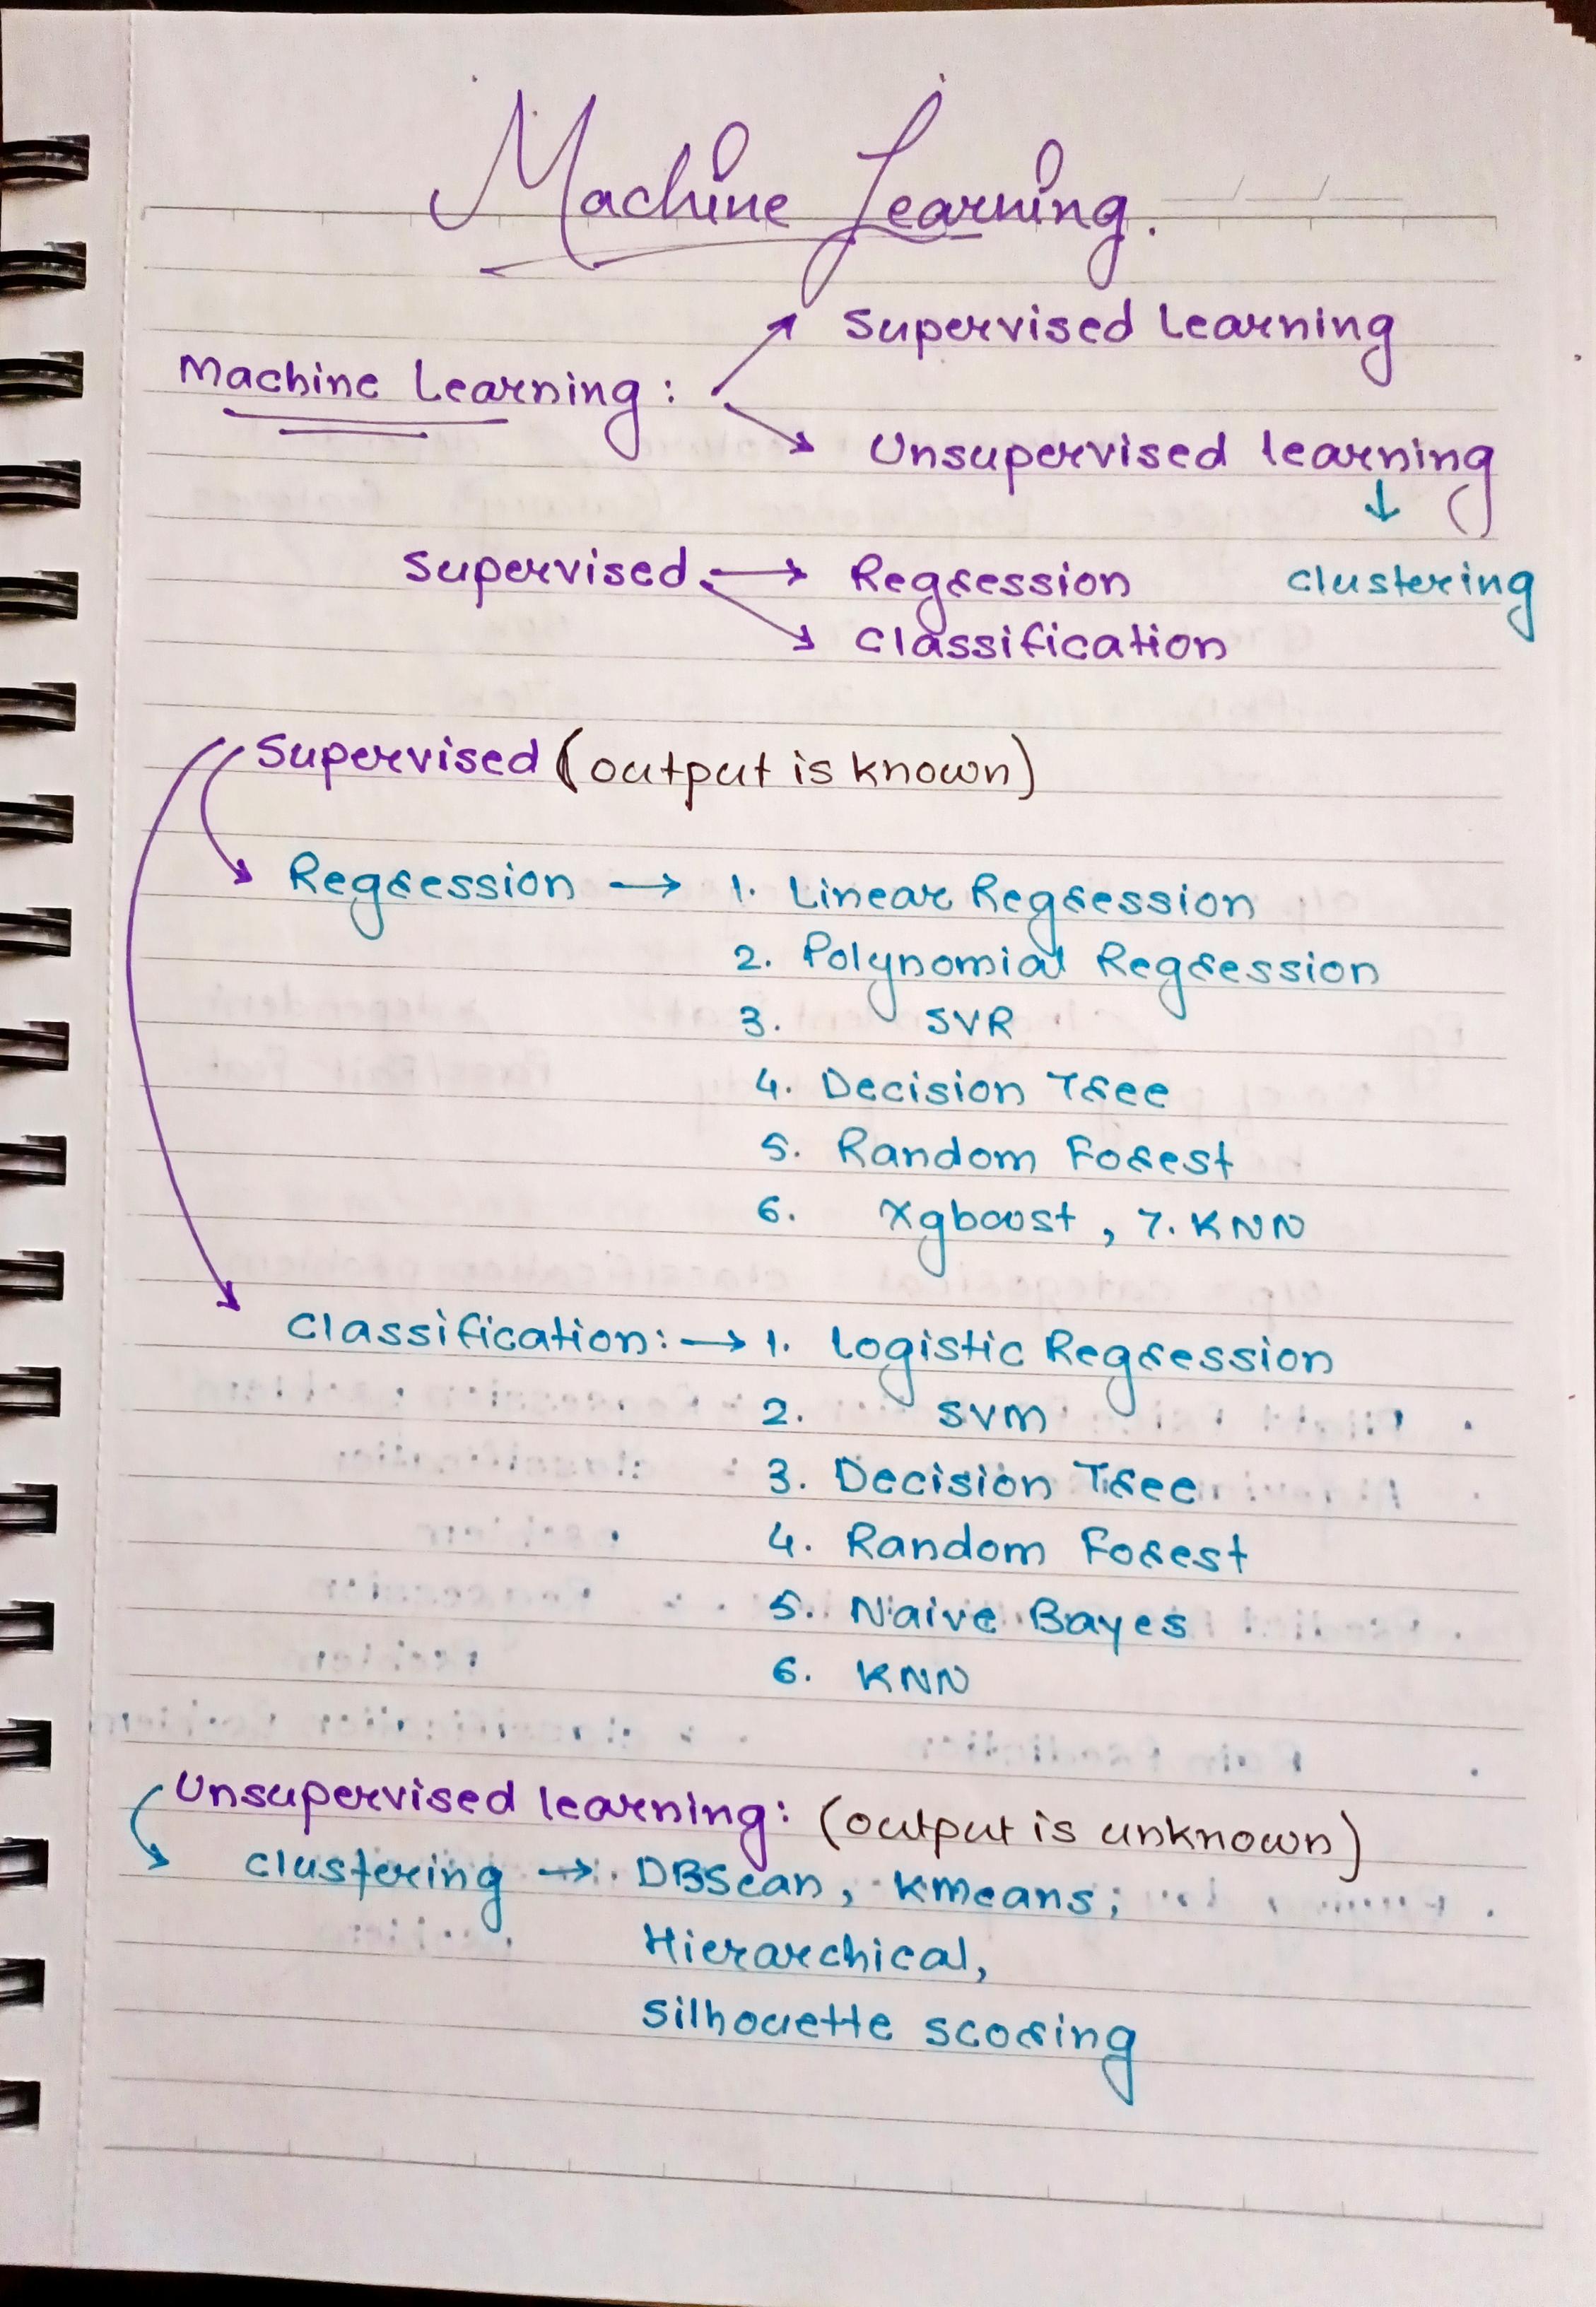 Machine Learning.
Supervised Learning
Machine Learning :
Unsupervised learning
↓
Supervised → Regression clustering
Classification
Supervised (output is known)
Regression → 1. Linear Regression
2. Polynomial Regression
3. SVR
4. Decision Tree
5. Random Forest
6. Xgboost , 7. KNN
Classification: → 1. Logistic Regression
2. SVM
3. Decision Tree
4. Random Forest
5. Naive Bayes
6. KNN
Unsupervised learning: (output is unknown)
clustering → DBScan, Kmeans,
Hierarchical,
Silhouette scoring